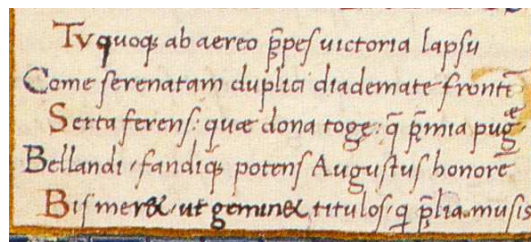 Tu quoqꝫ ab aereo p̄pes uictoria lapsu
Come serenatam duplici diademate frontē
Serta ferens: quæ dona togę: q̄ p̄mia pugǣ
Bellandi, fandiqꝫ potens Augustus honorē
Bis meret, ut geminet titulos, q̄ p̄lia musis